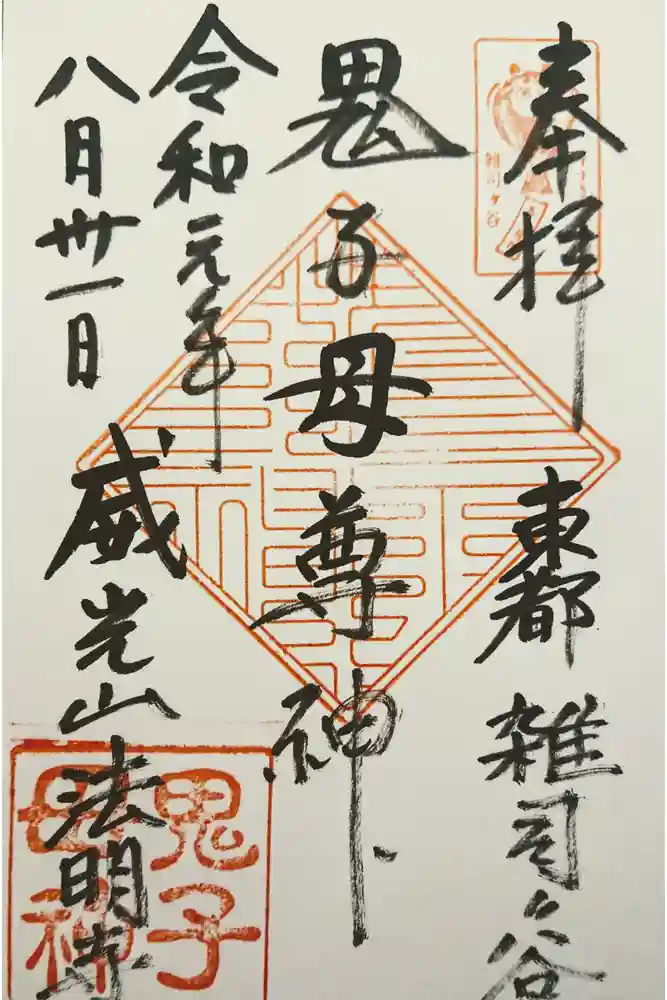 奉拝
東都 雑司ケ谷
鬼子母尊神
令和元年
八月卅一日
威光山法明寺
雑司ヶ谷
鬼子
母神